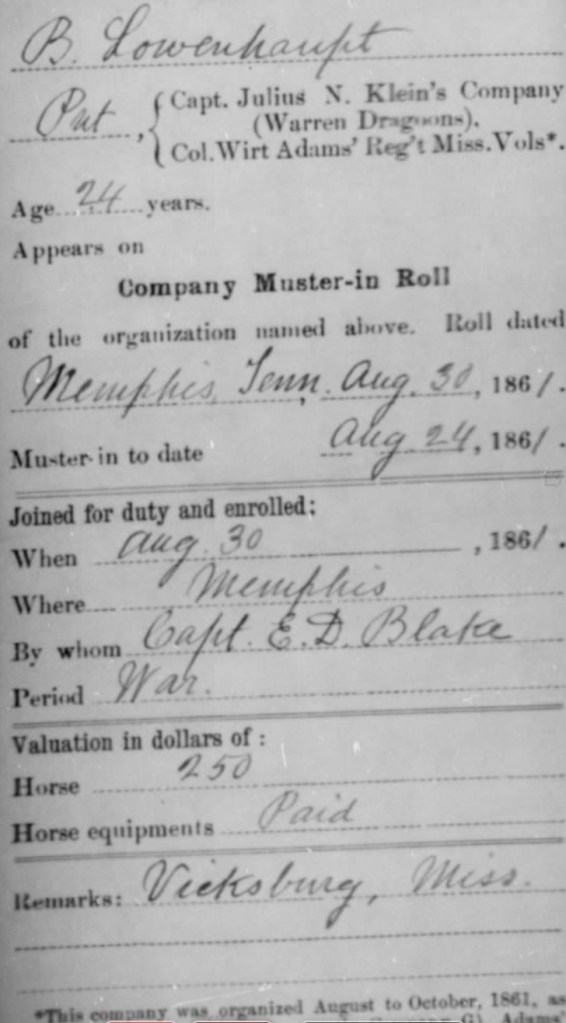 B. Lowenhaupt
Pvt, { Capt. Julius N. Klein's Company
(Warren Dragoons),
Col. Wirt Adams' Reg't Miss. Vols*.
Age 24 years.
Appears on
Company Muster-in Roll
of the organization named above. Roll dated
Memphis, Tenn. Aug. 30, 1861.
Muster-in to date Aug 24, 1861.
Joined for duty and enrolled:
When Aug. 30, 1861.
Where Memphis
By whom Capt. E. D. Blake
Period War.
Valuation in dollars of:
Horse 250
Horse equipments Paid
Remarks: Vicksburg, Miss.
*This company was organized August to October, 1861, as
G), Adams'